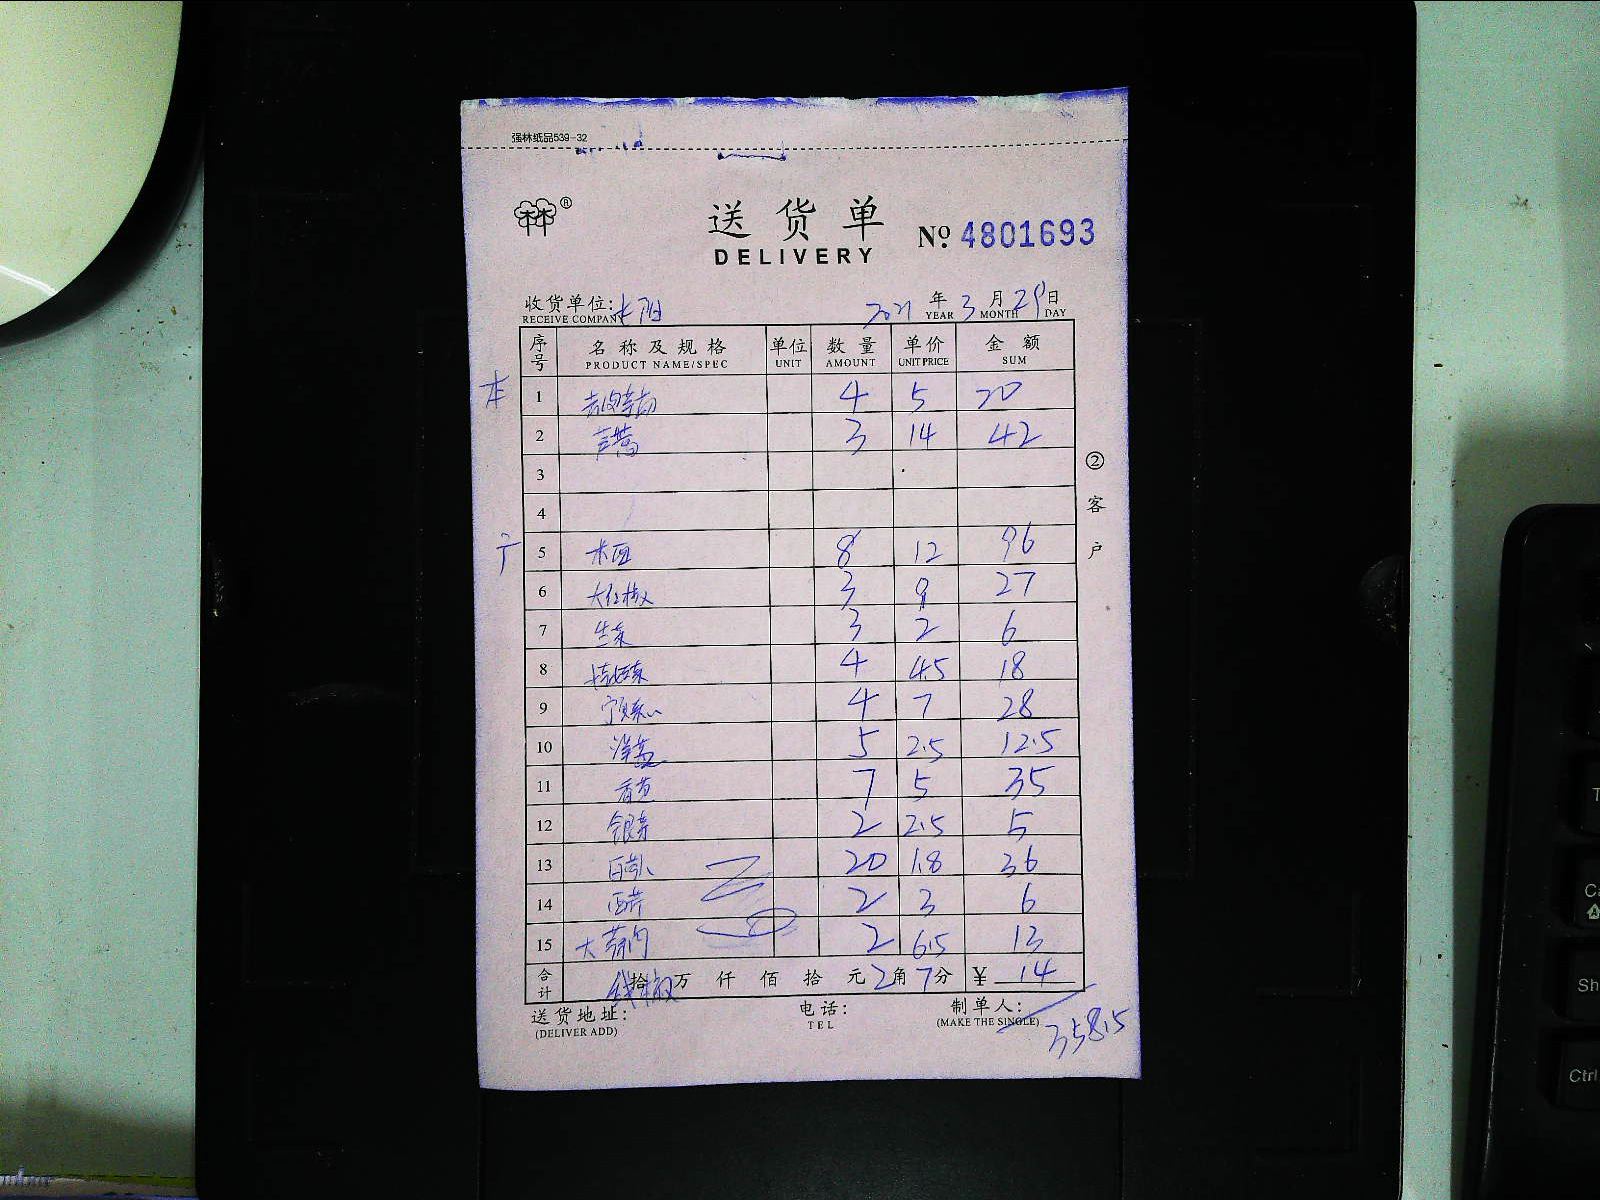 强林纸品539-32
送货单
DELIVERY
№ 4801693
收货单位:
RECEIVE COMPAN
2021 年 3 月 29 日
YEAR MONTH DAY
序号 名称及规格 单位 数量 单价 金额
PRODUCT NAME/SPEC UNIT AMOUNT UNIT PRICE SUM
本 1 4 5 20
2 3 14 42
3
4
5 8 12 96
6 大红椒 3 9 27
7 生菜 3 2 6
8 4 4.5 18
9 4 7 28
10 洋葱 5 2.5 12.5
11 7 5 35
12 银芽 2 2.5 5
13 20 1.8 36
14 西芹 2 3 6
15 大 2 6.5 13
合计 拾 万 仟 佰 拾 元 2 角 7 分 ¥ 14
送货地址: 电话: 制单人:
(DELIVER ADD) TEL (MAKE THE SINGLE)
358.5
② 客户